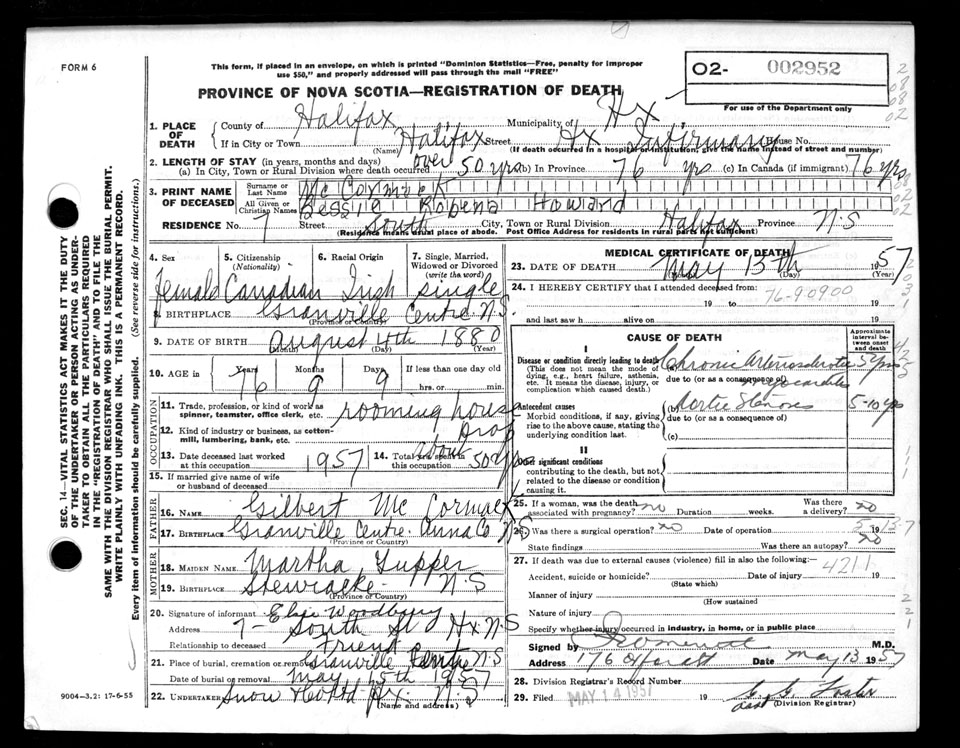 FORM 6
This form, if placed in an envelope, on which is printed "Dominion Statistics—Free, penalty for improper
use $50," and properly addressed will pass through the mail "FREE"
PROVINCE OF NOVA SCOTIA—REGISTRATION OF DEATH
O2- 002952
For use of the Department only
1. PLACE OF DEATH { County of Halifax Municipality of Hx
If in City or Town Halifax Street Hx Infirmary House No.
(Name) (If death occurred in a hospital or institution, give the name instead of street and number)
2. LENGTH OF STAY (in years, months and days)
(a) In City, Town or Rural Division where death occurred over 50 yrs (b) In Province 76 yrs (c) In Canada (if immigrant) 76 yrs
3. PRINT NAME OF DECEASED { Surname or Last Name Mc Cormack
All Given or Christian Names Robena Howard
RESIDENCE No. 7 Street South City, Town or Rural Division Halifax Province N.S
(Residence means usual place of abode. Post Office Address for residents in rural parts not sufficient)
4. Sex Female
5. Citizenship (Nationality) Canadian
6. Racial Origin Irish
7. Single, Married, Widowed or Divorced (write the word) single
8. BIRTHPLACE Granville Centre N.S.
(Province or Country)
9. DATE OF BIRTH August 4th 1880
(Month) (Day) (Year)
10. AGE in Years 76 Months 9 Days 9 If less than one day old
hrs. or min.
OCCUPATION
11. Trade, profession, or kind of work as spinner, teamster, office clerk, etc. rooming house
12. Kind of industry or business, as cotton-mill, lumbering, bank, etc. Prop
13. Date deceased last worked at this occupation 1957
14. Total yrs. spent in this occupation about 50 yrs
15. If married give name of wife or husband of deceased
FATHER
16. NAME Gilbert Mc Cormack
17. BIRTHPLACE Granville Centre Anna Co N.S
(Province or Country)
MOTHER
18. MAIDEN NAME Martha Tupper
19. BIRTHPLACE Stewiacke N.S
(Province or Country)
20. Signature of informant Elsie Woodbury
Address 7- South St Hx. N.S
Relationship to deceased Friend
21. Place of burial, cremation or removal Granville Centre N.S
Date of burial or removal May 15th 1957
22. UNDERTAKER Snow Hx. N.S
(Name and address)
MEDICAL CERTIFICATE OF DEATH
23. DATE OF DEATH May 13th 1957
(Month) (Day) (Year)
24. I HEREBY CERTIFY that I attended deceased from
76-90900
19 to 19
and last saw h alive on 19
CAUSE OF DEATH
Approximate interval between onset and death
I
Disease or condition directly leading to death
(This does not mean the mode of dying, e.g., heart failure, asthenia, etc. It means the disease, injury, or complication which caused death.)
(a) Chronic Arteriosclerotic 5 yrs
due to (or as a consequence of) myocarditis
Antecedent causes
Morbid conditions, if any, giving rise to the above cause, stating the underlying condition last.
(b) Aortic Stenosis 5-10 yrs
due to (or as a consequence of)
(c)
II
Other significant conditions
contributing to the death, but not related to the disease or condition causing it.
25. If a woman, was the death associated with pregnancy? no Duration weeks. Was there a delivery? no
26. Was there a surgical operation? no Date of operation 19
State findings Was there an autopsy? no
27. If death was due to external causes (violence) fill in also the following:—
4211
Accident, suicide or homicide? Date of injury 19
(State which)
Manner of injury
(How sustained)
Nature of injury
Specify whether injury occurred in industry, in home, or in public place
Signed by M.D.
Address 176 Date May 13 1957
28. Division Registrar's Record Number
29. Filed MAY 14 1957 19 Foster
(Division Registrar)
SEC. 14—VITAL STATISTICS ACT MAKES IT THE DUTY
OF THE UNDERTAKER OR PERSON ACTING AS UNDER-
TAKER TO OBTAIN ALL THE PARTICULARS REQUIRED
IN THE "REGISTRATION OF DEATH" AND TO FILE THE
SAME WITH THE DIVISION REGISTRAR WHO SHALL ISSUE THE BURIAL PERMIT.
WRITE PLAINLY WITH UNFADING INK. THIS IS A PERMANENT RECORD.
Every item of information should be carefully supplied. (See reverse side for instructions.)
9004-3.2: 17-6-55